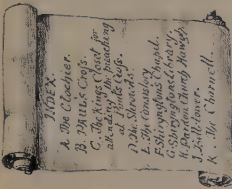 INDEX.
A. The Clochier.
B. PAULS Cross.
C. The Kings Closet for
attending the preaching
at Pauls Cross.
D. The Shrowds.
E. The Consistory
F. Shiryngtons Chapel.
G. Sheryngtons Library.
H. Pardon Church Haugh.
J. Lollards Tower.
K. The Charnell.